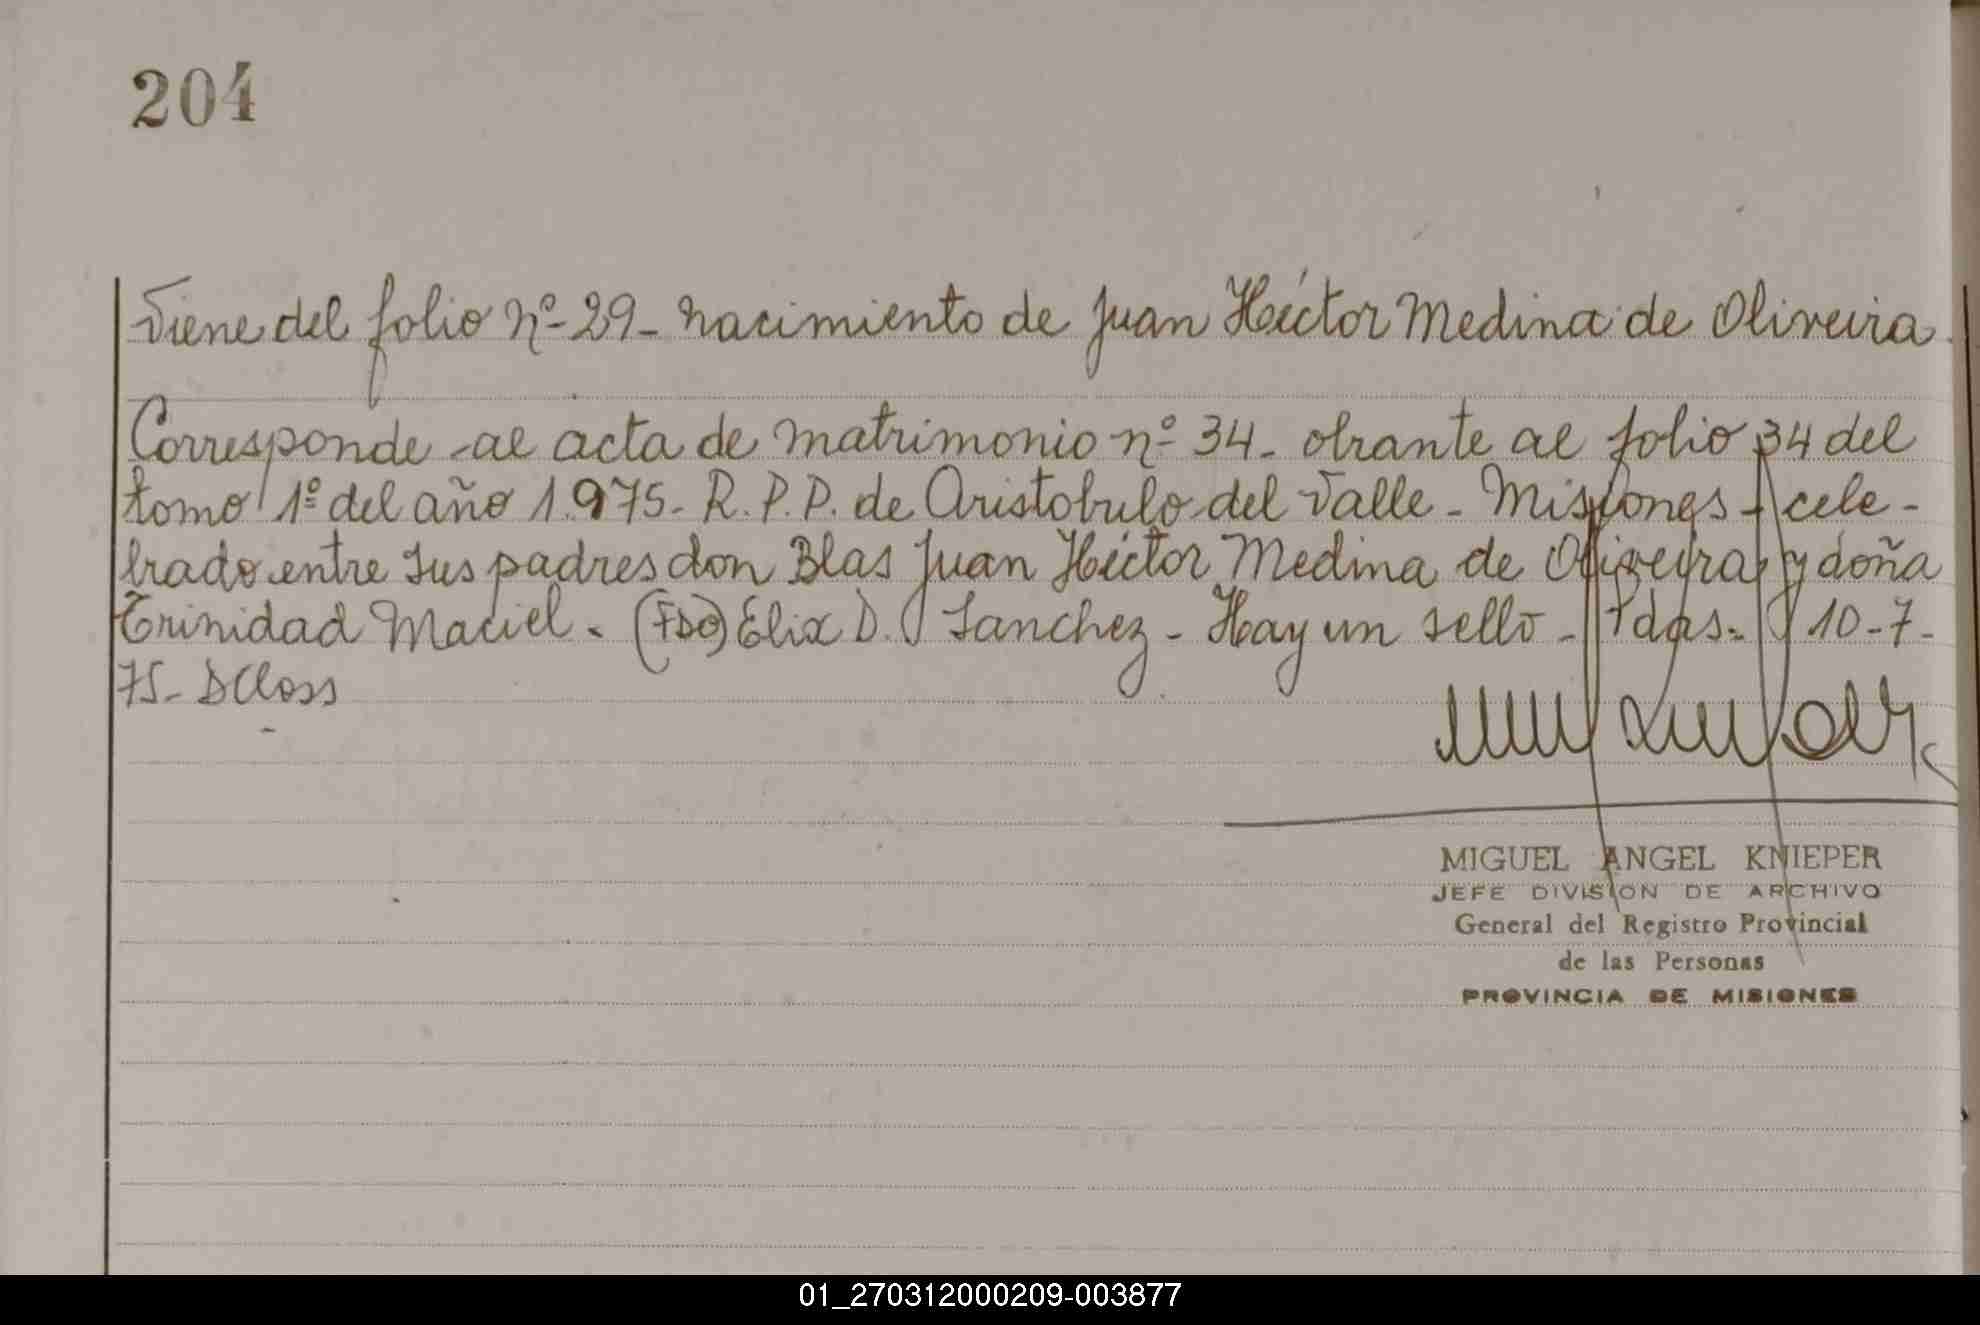 204
Viene del folio nº 29- nacimiento de Juan Héctor Medina de Oliveira.
Corresponde al acta de matrimonio nº 34- obrante al folio 34 del
tomo 1º del año 1.975- R.P.P. de Aristobulo del Valle - Misiones - cele-
brado entre sus padres don Blas Juan Héctor Medina de Oliveira y doña
Trinidad Maciel. (FDO) Elix D. Sanchez - Hay un sello - Pdas. 10-7-
75- DCloss
MIGUEL ANGEL KNIEPER
JEFE DIVISION DE ARCHIVO
General del Registro Provincial
de las Personas
PROVINCIA DE MISIONES
01_270312000209-003877